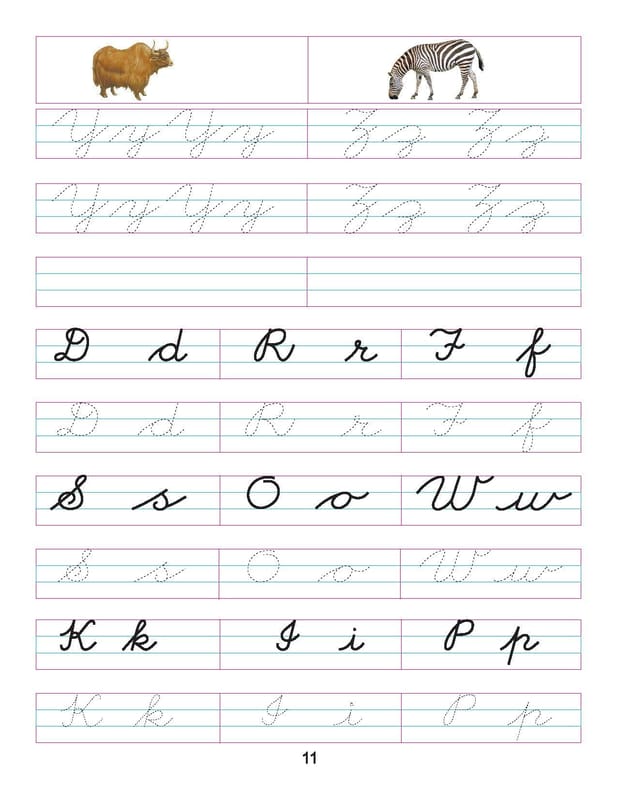 Yy Yy Zz Zz
Yy Yy Zz Zz
D d R r F f
D d R r F f
S s O o W w
S s O o W w
K k I i P p
K k I i P p
11